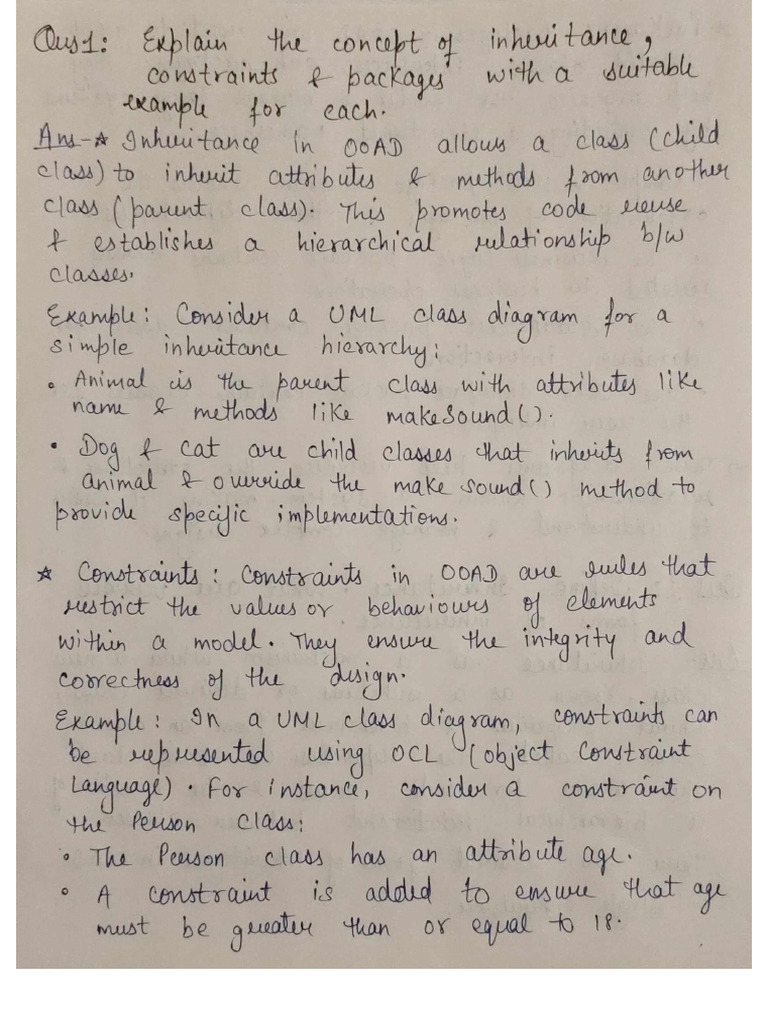 Ques1: Explain the concept of inheritance,
constraints & packages with a suitable
example for each.
Ans-☆ Inheritance in OOAD allows a class (child
class) to inherit attributes & methods from another
class (parent class). This promotes code reuse
& establishes a hierarchical relationship b/w
classes.
Example: Consider a UML class diagram for a
simple inheritance hierarchy:
• Animal is the parent class with attributes like
name & methods like makeSound().
• Dog & Cat are child classes that inherits from
animal & override the make sound() method to
provide specific implementations.
☆ Constraints: Constraints in OOAD are rules that
restrict the values or behaviours of elements
within a model. They ensure the integrity and
correctness of the design.
Example: In a UML class diagram, constraints can
be represented using OCL (object Constraint
Language). For instance, consider a constraint on
the Person class:
• The Person class has an attribute age.
• A constraint is added to ensure that age
must be greater than or equal to 18.